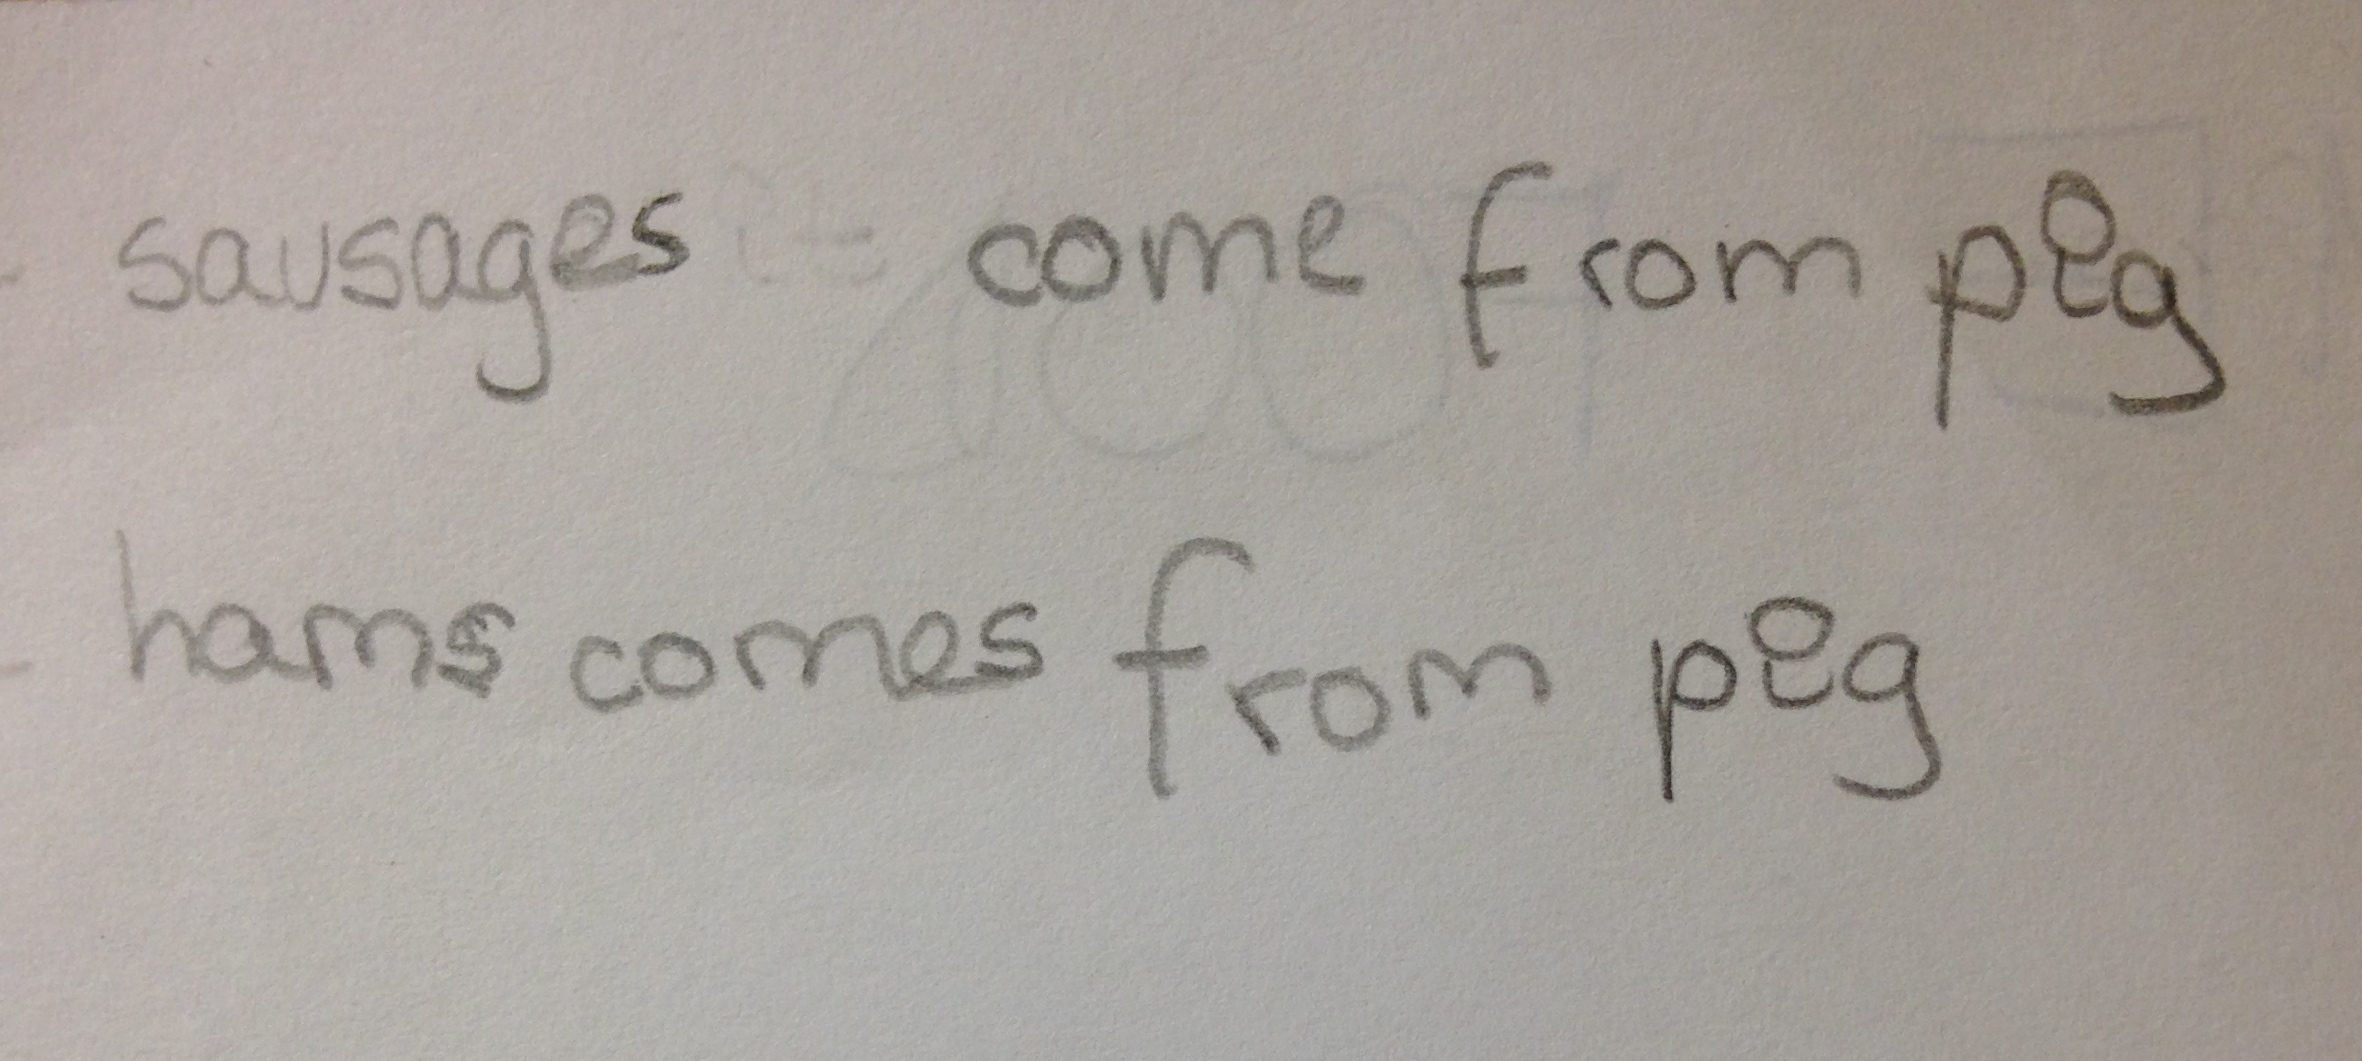 - sausages come from pig
- hams comes from pig